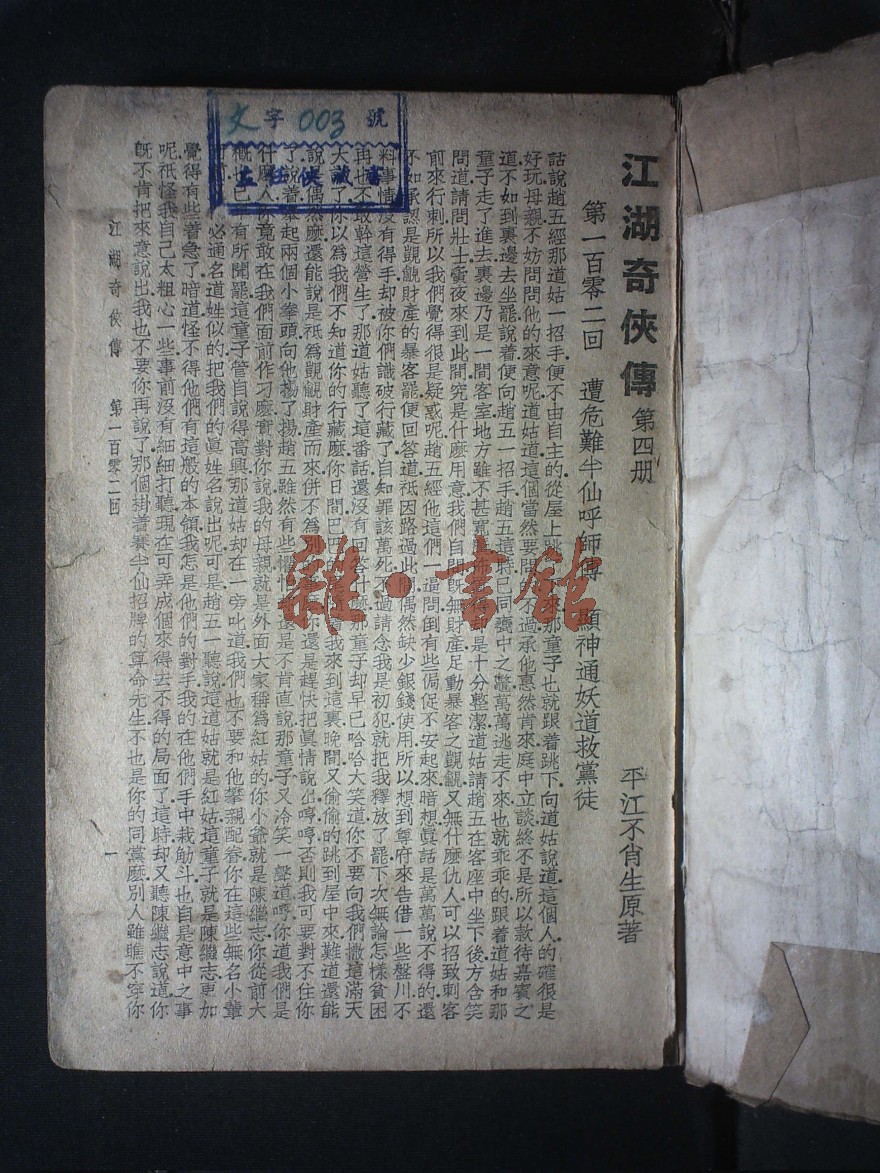 江湖奇俠傳 第四册
平江不肖生原著
第一百零二回 遭危難半仙呼師傅 顯神通妖道救黨徒
話說趙五經那道姑一招手便不由自主的從屋上跳 來那童子也就跟着跳下向道姑說道這個人的確很是
好玩母親不妨問問他的來意呢道姑道這個當然要問 不過承他惠然肯來庭中立談終不是所以欵待嘉賓之
道不如到裏邊去坐罷說着便向趙五一招手趙五這時已 甕中之鼈萬萬逃走不來也就乖乖的跟着道姑和那
童子走了進去裏邊乃是一間客室地方雖不甚寬 佈 得却是十分整潔道姑請趙五在客座中坐下後方含笑
問道請問壯士夤夜來到此間究是什麼用意我們自問既無財產足動暴客之覬覦又無什麼仇人可以招致刺客
前來行刺所以我們覺得很是疑惑呢趙五經他這們一逼問倒有些侷促不安起來暗想眞話是萬萬說不得的還
不如承認是覬覦財產的暴客罷便回答道祇因路過此 偶然缺少銀錢使用所以想到尊府來告借一些盤川不
料事情沒有得手却被你們識破行藏了自知罪該萬死不過請念我是初犯就把我釋放了罷下次無論怎樣貧困
再也不敢幹這營生了那道姑聽了這番話還沒有回答什麼那童子却早已哈哈大笑道你不要向我們撒這滿天
大謊了你以為我們不知道你的行藏麼你日間巴巴的 着我來到這裏晚間又偷偷的跳到屋中來難道還能
說是偶然麼還能說是祇為覬覦財產而來併不為別 你還是趕快把眞情說出哼哼否則我可要對不住你
了說着舉起兩個小拳頭向他揚了揚趙五雖然有些懼怕 還是不肯直說那童子又冷笑一聲道哼你道我們是
什麼人你竟敢在我們面前作刁麼實對你說我的母親就是外面大家稱為紅姑的你小爺就是陳繼志你從前大
概也已 有所聞罷這童子管自說得高興那道姑却在一旁叱道我們也不要和他攀親配眷你在這些無名小輩
必通名道姓似的把我們的眞姓名說出呢可是趙五一聽說這道姑就是紅姑這童子就是陳繼志更加
覺得有些着急了暗道怪不得他們有這般的本領我怎是他們的對手我的在他們手中栽觔斗也自是意中之事
呢祇怪我自己太粗心一些事前沒有細細打聽現在可弄成個來得去不得的局面了這時却又聽陳繼志說道你
既不肯把來意說出我也不要你再說了那個掛着賽半仙招牌的算命先生不也是你的同黨麼別人雖瞧不穿你
江湖奇俠傳 第一百零二回 一
文字003號
雜·書館